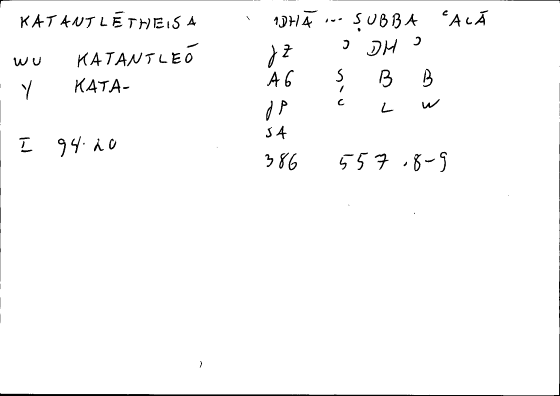 KATANTLĒTHEISA
WU KATANTLEŌ
Y KATA-
I 94.20
ʾIDHĀ ... ṢUBBA ʿALĀ
JZ ʾ DH ʾ
AG Ṣ B B
JP ʿ L W
SA
386 557.8-9